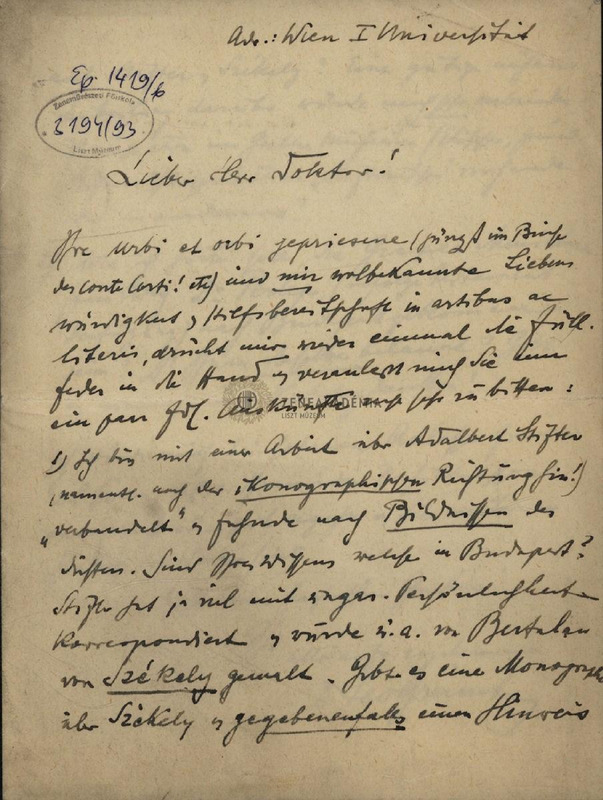 Adr.: Wien I Universität
Ep. 1419/b
Zeneművészeti Főiskola
3194/93
Liszt Múzeum
Lieber Herr Doktor!
Ihre urbi et orbi gepriesene (jüngst im Buche
des conte Corti! etc) und mir wolbekannte Liebens
würdigkeit u Hilfsbereitschaft in artibus ac
literis, drückt mir wieder einmal die Füll-
feder in die Hand u veranlasst mich Sie um
ein paar frdl. Auskünfte zu bitten:
ZENEAKADÉMIA
LISZT MÚZEUM
1) Ich bin mit einer Arbeit über Adalbert Stifter
(namentl. nach der ikonographischen Richtung hin!)
"verbandelt" u fahnde nach Bildnissen des
Dichters. Sind Ihres Wissens welche in Budapest?
Stifter hat ja viel mit ungar. Persönlichkeiten
korrespondiert u wurde u. a. von Bertalan
von Székely gemalt. Gibt es eine Monographie
über Székely u gegebenenfalls einen Hinweis